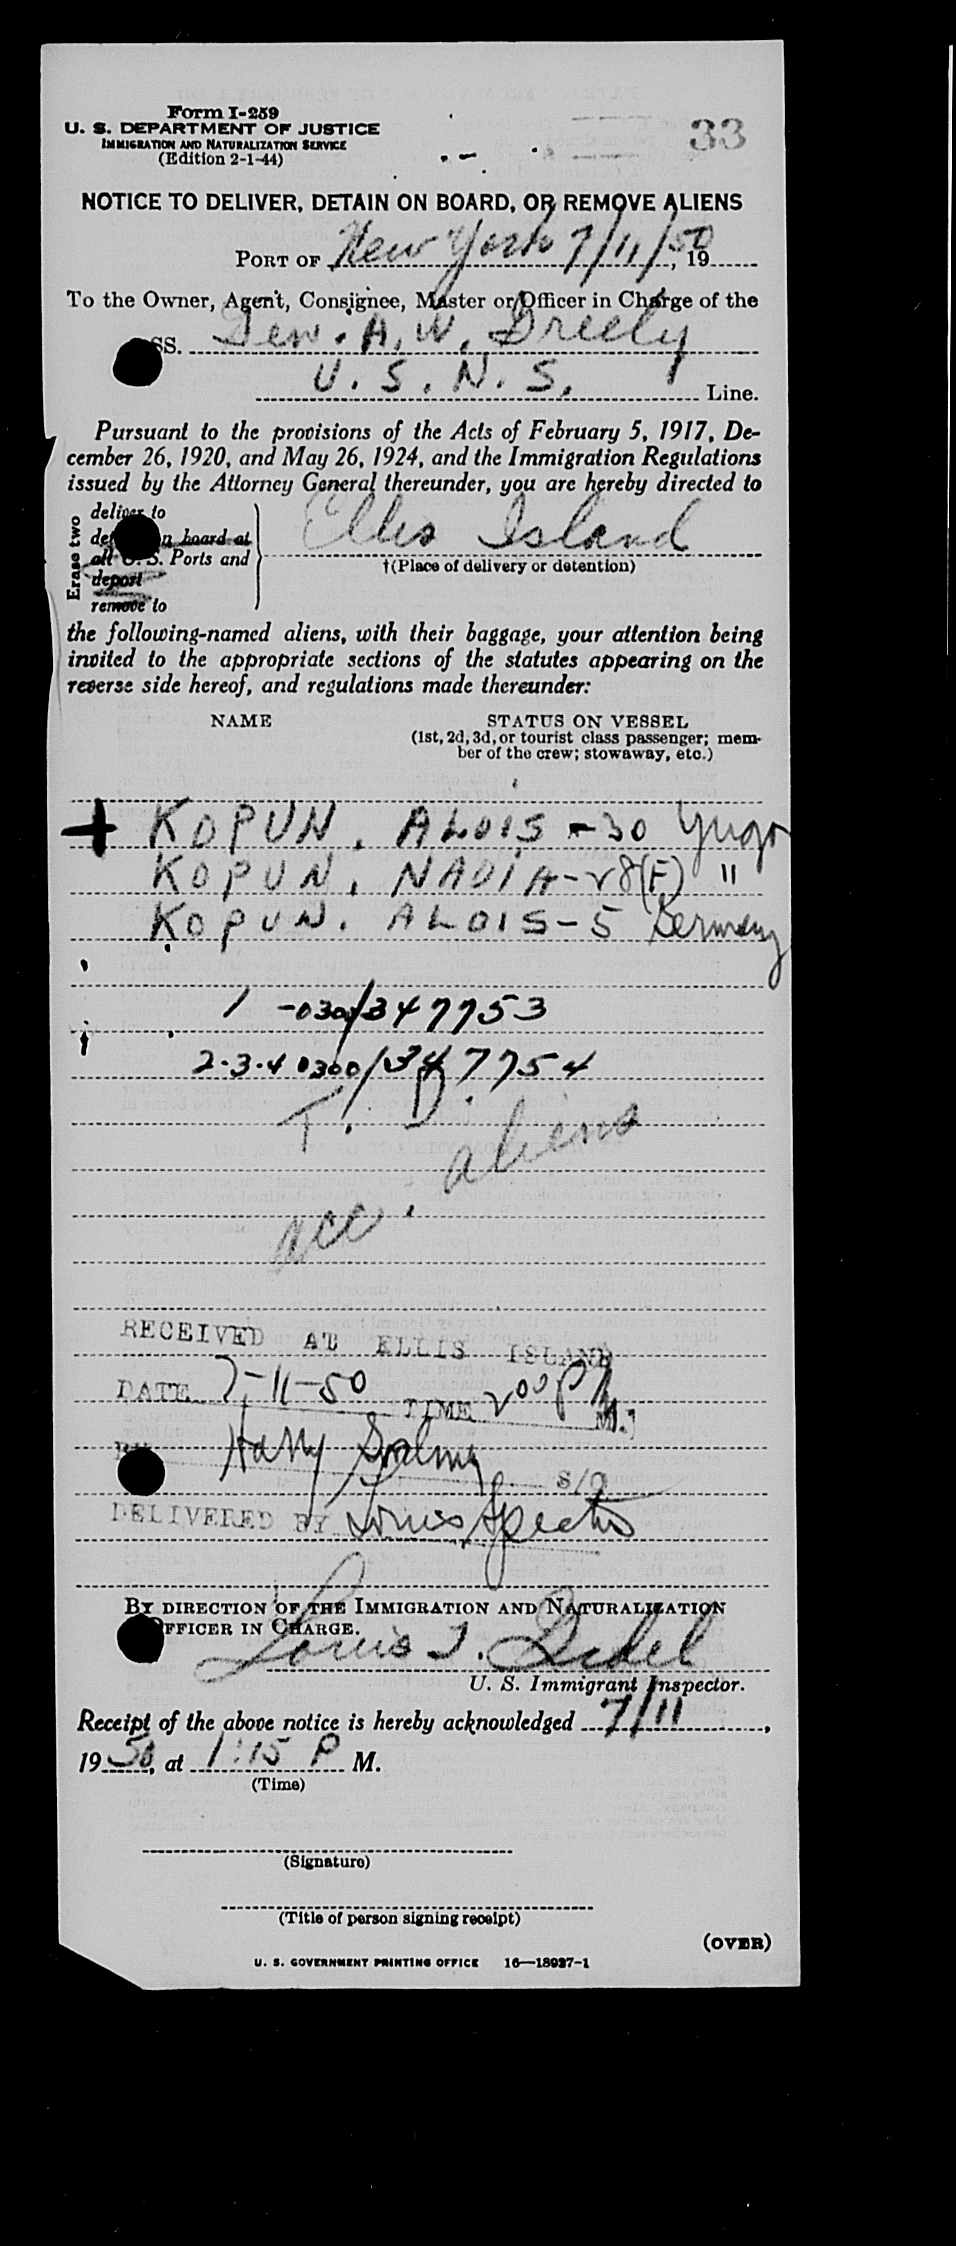 Form I-259
U. S. DEPARTMENT OF JUSTICE
IMMIGRATION AND NATURALIZATION SERVICE
(Edition 2-1-44)
33
NOTICE TO DELIVER, DETAIN ON BOARD, OR REMOVE ALIENS
PORT OF New York 7/11/50, 19
To the Owner, Agent, Consignee, Master or Officer in Charge of the
SS. Gen. A. W. Greely
U. S. N. S. Line.
Pursuant to the provisions of the Acts of February 5, 1917, De-
cember 26, 1920, and May 26, 1924, and the Immigration Regulations
issued by the Attorney General thereunder, you are hereby directed to
Erase two
deliver to
n board at
all U. S. Ports and
deport
remove to
Ellis Island
†(Place of delivery or detention)
the following-named aliens, with their baggage, your attention being
invited to the appropriate sections of the statutes appearing on the
reverse side hereof, and regulations made thereunder:
NAME STATUS ON VESSEL
(1st, 2d, 3d, or tourist class passenger; mem-
ber of the crew; stowaway, etc.)
+ KOPUN, ALOIS - 30 Yugo
KOPUN, NADIA - 28 (F) "
KOPUN, ALOIS - 5 Germany
1 -0300/347753
2-3-4 0300/347754
T. D.
acc. aliens
RECEIVED AT ELLIS ISLAND
DATE 7-11-50 TIME 2 00 P M.
BY Harry S/O
DELIVERED BY Louis Spector
BY DIRECTION OF THE IMMIGRATION AND NATURALIZATION
OFFICER IN CHARGE.
Louis I.
U. S. Immigrant Inspector.
Receipt of the above notice is hereby acknowledged 7/11,
19 50, at 1:15 P M.
(Time)
(Signature)
(Title of person signing receipt)
(OVER)
U. S. GOVERNMENT PRINTING OFFICE 16—18937-1